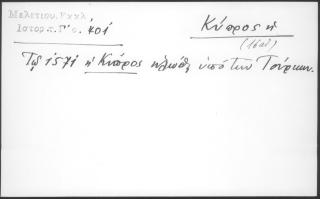 Μελετίου, Εκκλ.
Ιστορ. τ. Γ' σ. 401
Κύπρος ἡ
(16 αἰ)
Τῷ 1571 ἡ Κύπρος ὑπὸ τῶν Τούρκων.